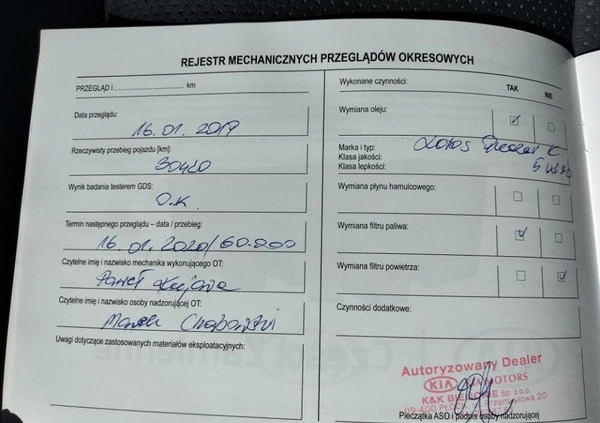 REJESTR MECHANICZNYCH PRZEGLĄDÓW OKRESOWYCH
PRZEGLĄD I.............................. km
Data przeglądu:
16.01.2019
Rzeczywisty przebieg pojazdu [km]:
30420
Wynik badania testerem GDS:
O.K.
Termin następnego przeglądu – data / przebieg:
16.01.2020/60.000
Czytelne imię i nazwisko mechanika wykonującego OT:
Paweł
Czytelne imię i nazwisko osoby nadzorującej OT:
Marek
Uwagi dotyczące zastosowanych materiałów eksploatacyjnych:
Wykonane czynności:
TAK NIE
Wymiana oleju:
Marka i typ: Lotos
Klasa jakości:
Klasa lepkości: 5W30
Wymiana płynu hamulcowego:
Wymiana filtru paliwa:
Wymiana filtru powietrza:
Czynności dodatkowe:
Autoryzowany Dealer
KIA KIA MOTORS
K&K Sp. z o.o.
09-400 Przemysłowa 20
Pieczątka ASO i podpis osoby nadzorującej